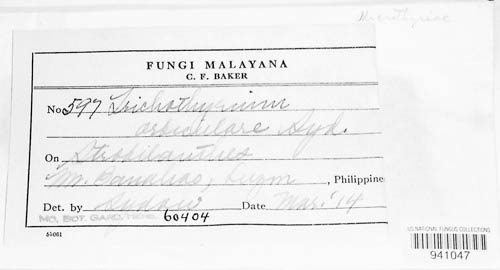 Microthyriac
FUNGI MALAYANA
C. F. BAKER
No. 597 Trichothyrium
orbiculare Syd.
On Strobilanthes
Mt. Banahao, Luzon, Philippine
Det. by Sydow Date Mar. '14
MO. BOT. GARD. HERB. 60404
55061
US NATIONAL FUNGUS COLLECTIONS
941047